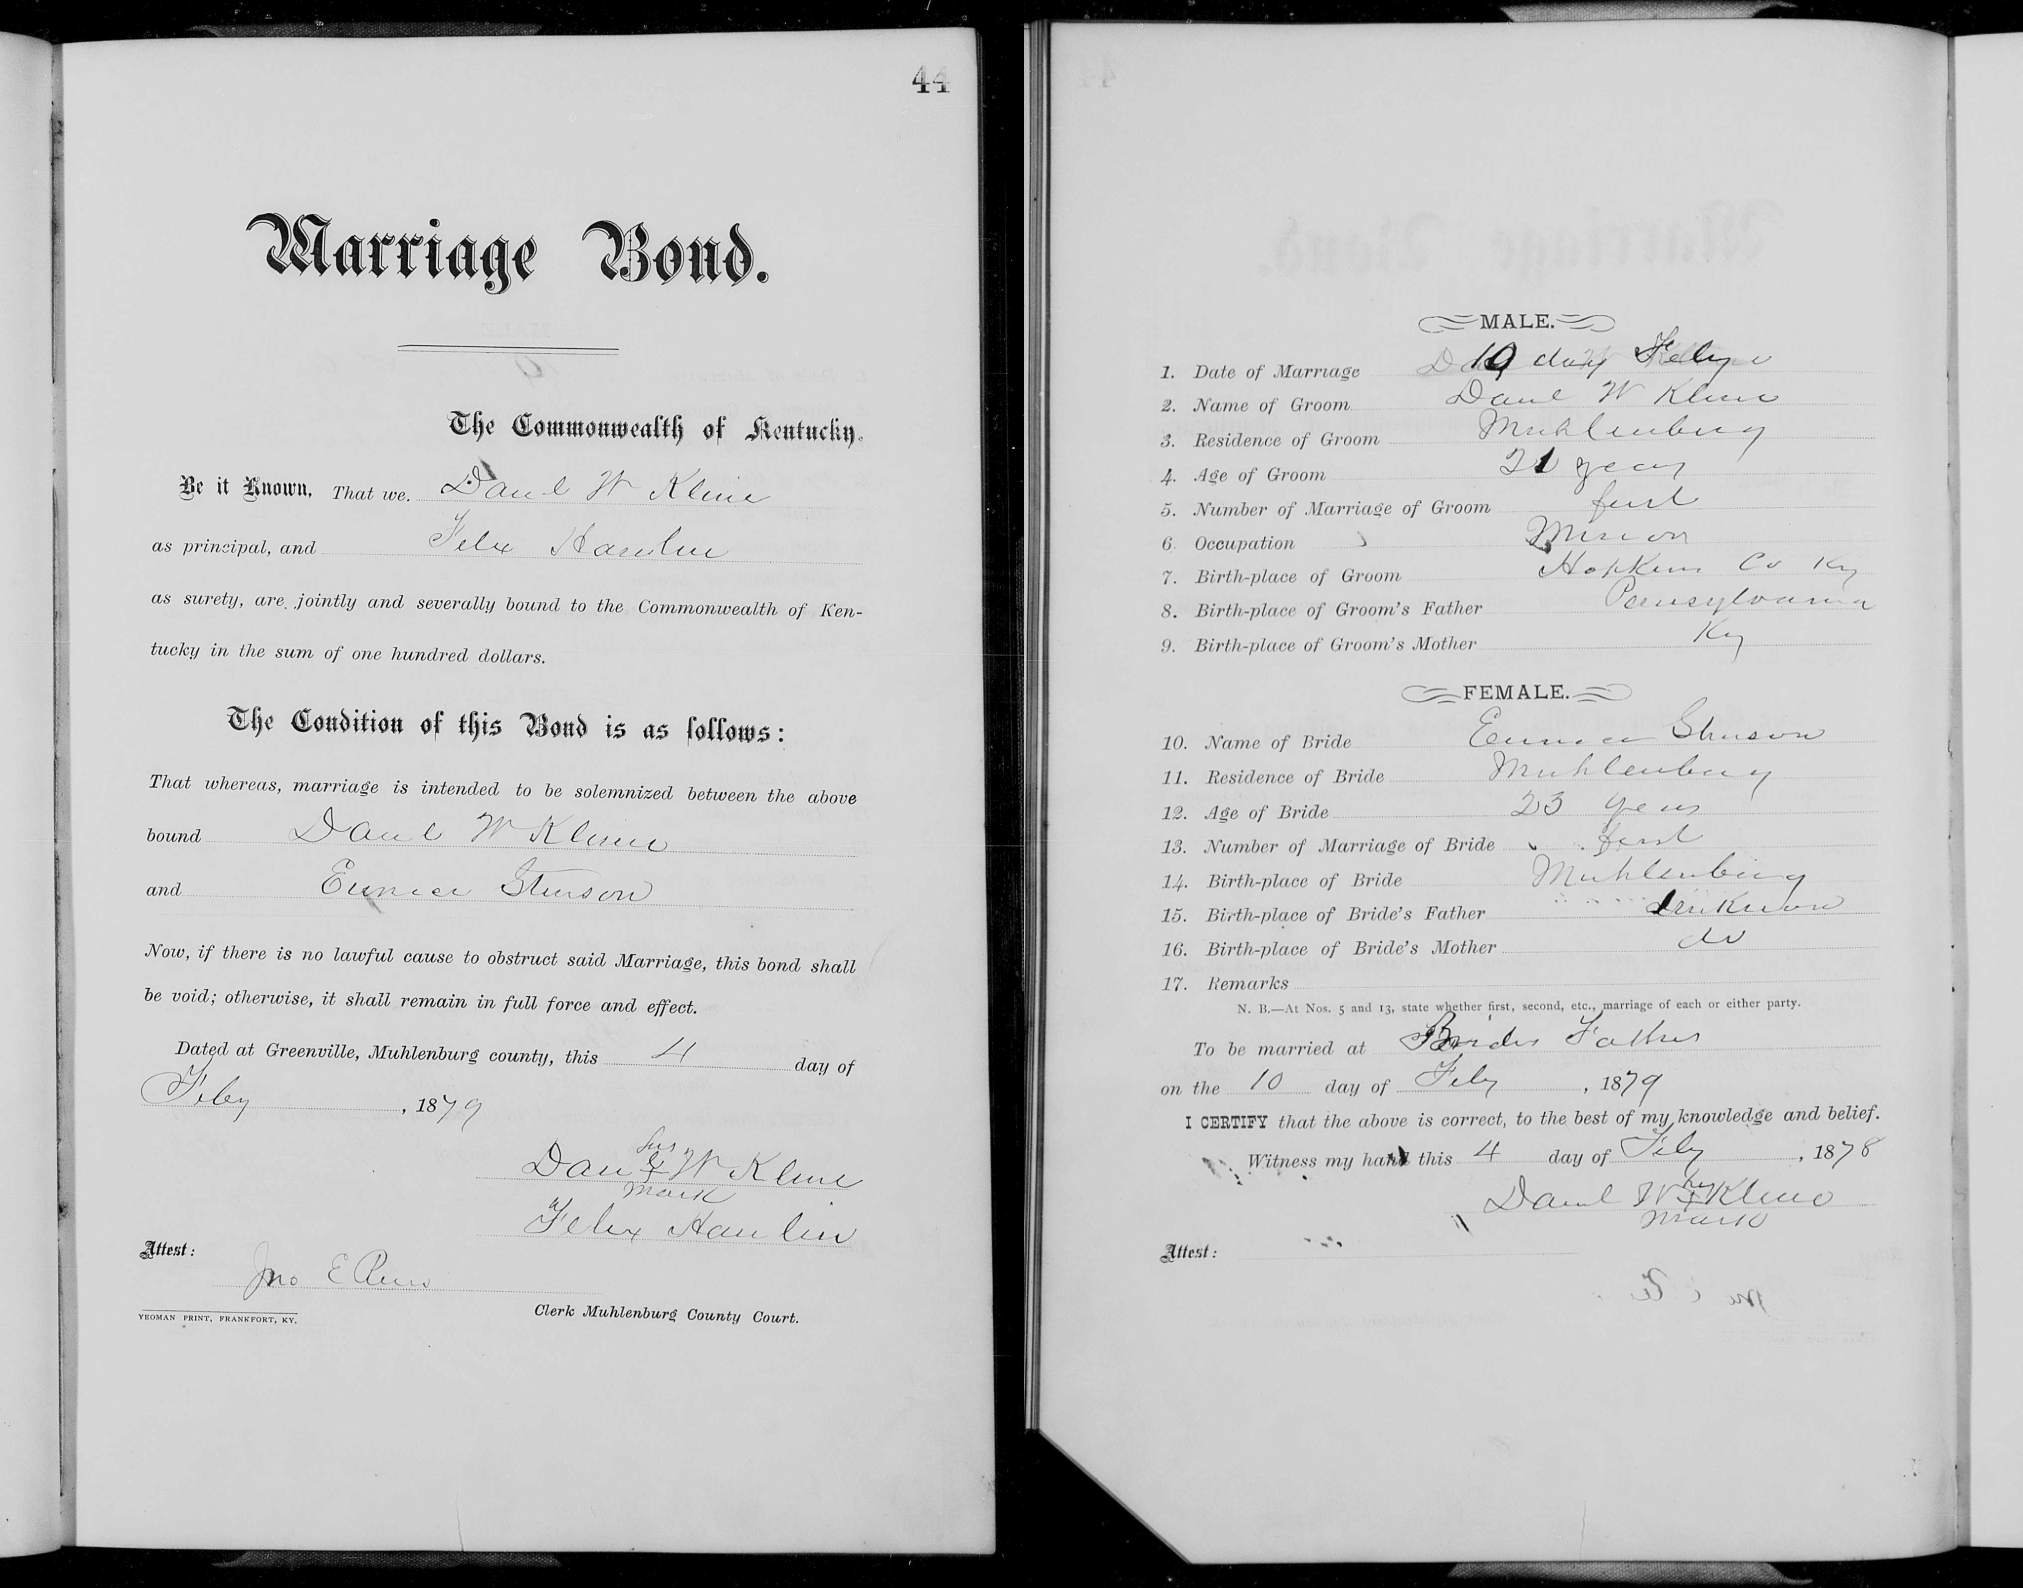 44
Marriage Bond.
The Commonwealth of Kentucky.
Be it Known, That we. Danl W Kline
as principal, and Felix Hamlin
as surety, are jointly and severally bound to the Commonwealth of Ken-
tucky in the sum of one hundred dollars.
The Condition of this Bond is as follows:
That whereas, marriage is intended to be solemnized between the above
bound Danl W Kline
and Eunice Stinson
Now, if there is no lawful cause to obstruct said Marriage, this bond shall
be void; otherwise, it shall remain in full force and effect.
Dated at Greenville, Muhlenburg county, this 4 day of
Feby, 1879
his
Danl x W Kline
mark
Felix Hamlin
Attest:
Jno E
Clerk Muhlenburg County Court.
YEOMAN PRINT, FRANKFORT, KY.
MALE.
1. Date of Marriage 10 day Feby
2. Name of Groom Danl W Kline
3. Residence of Groom Muhlenburg
4. Age of Groom 21 years
5. Number of Marriage of Groom first
6. Occupation
7. Birth-place of Groom Hopkins Co Ky
8. Birth-place of Groom's Father Pennsylvania
9. Birth-place of Groom's Mother Ky
FEMALE.
10. Name of Bride Eunice Stinson
11. Residence of Bride Muhlenburg
12. Age of Bride 23 years
13. Number of Marriage of Bride first
14. Birth-place of Bride Muhlenburg
15. Birth-place of Bride's Father Unknown
16. Birth-place of Bride's Mother do
17. Remarks
N. B.—At Nos. 5 and 13, state whether first, second, etc., marriage of each or either party.
To be married at Brides Fathers
on the 10 day of Feby, 1879
I CERTIFY that the above is correct, to the best of my knowledge and belief.
Witness my hand this 4 day of Feby, 1878
his
Danl W x Kline
mark
Attest: